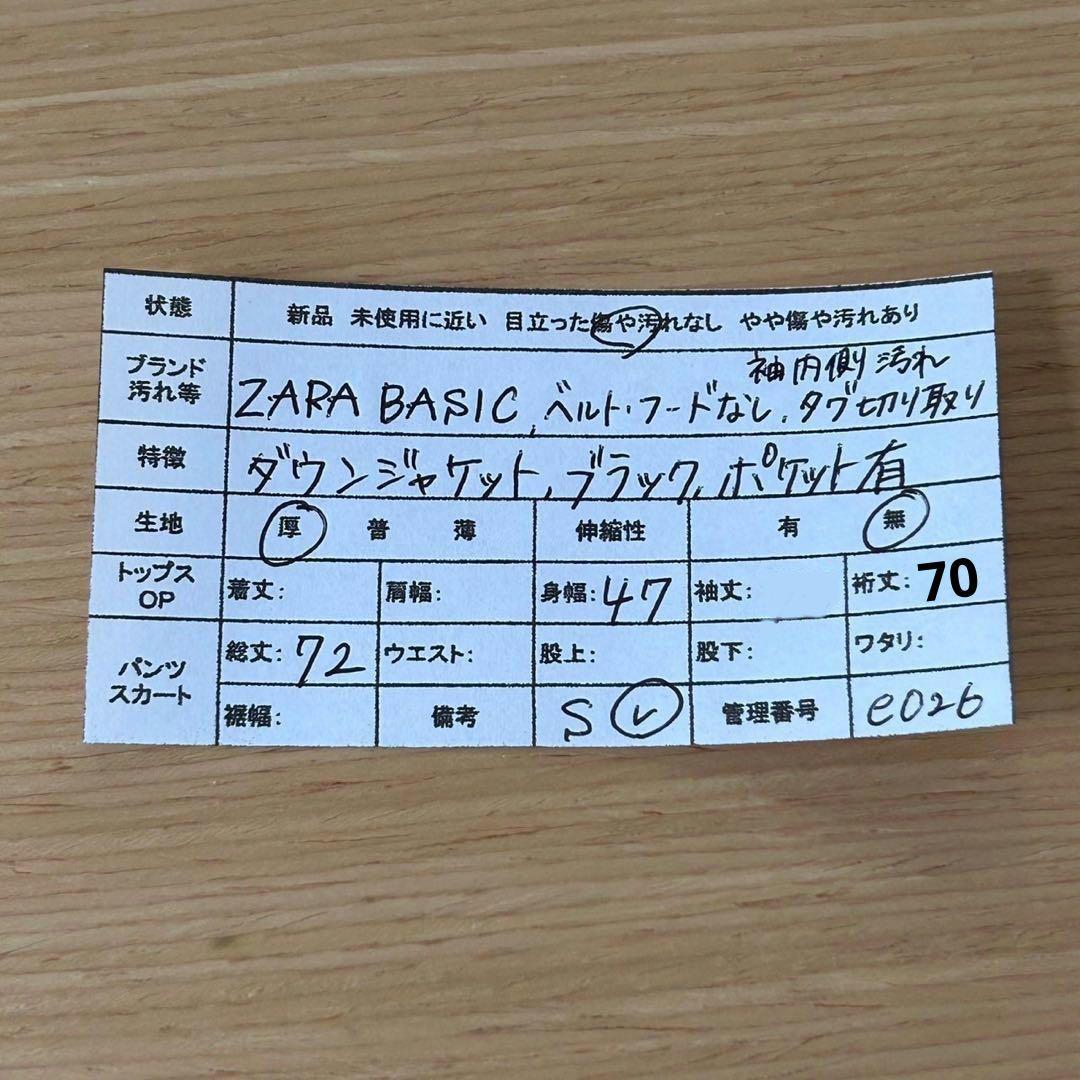 状態 新品 未使用に近い 目立った傷や汚れなし やや傷や汚れあり
ブランド
汚れ等
袖内側汚れ
ZARA BASIC, ベルト・フードなし、タブ切り取り
特徴 ダウンジャケット、ブラック、ポケット有
生地 厚 普 薄 伸縮性 有 無
トップス
OP
着丈: 肩幅: 身幅: 47 袖丈: 裄丈: 70
パンツ
スカート
総丈: 72 ウエスト: 股上: 股下: ワタリ:
裾幅: 備考 S レ 管理番号 e026